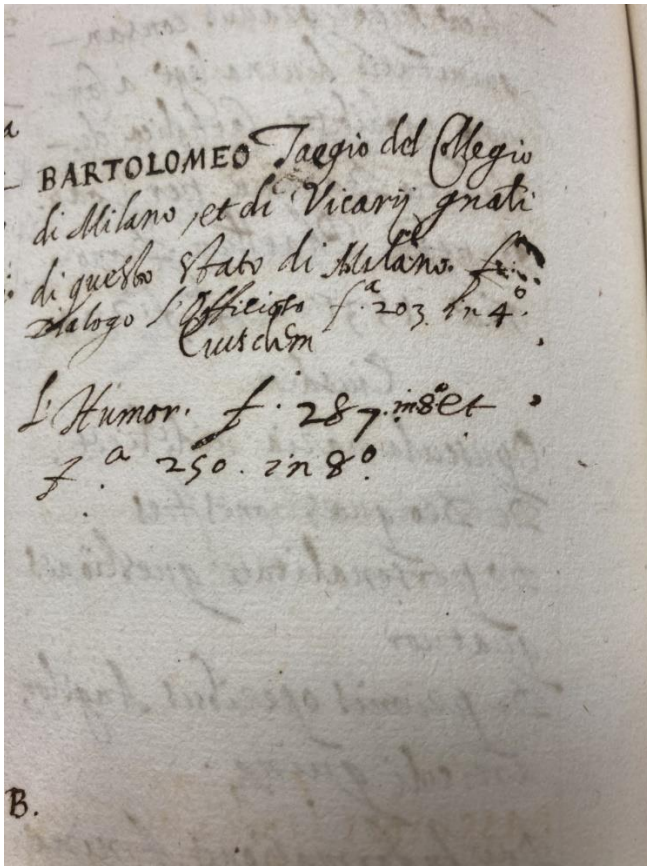 BARTOLOMEO Taegio del Collegio
di Milano, et di Vicarij gnali
di questo Stato di Milano.
Dialogo l'Officioso f.ª 203. in 4º.
Eiusdem
L'Humor. f. 287. in 8º et
f.ª 250. in 8º.
B.